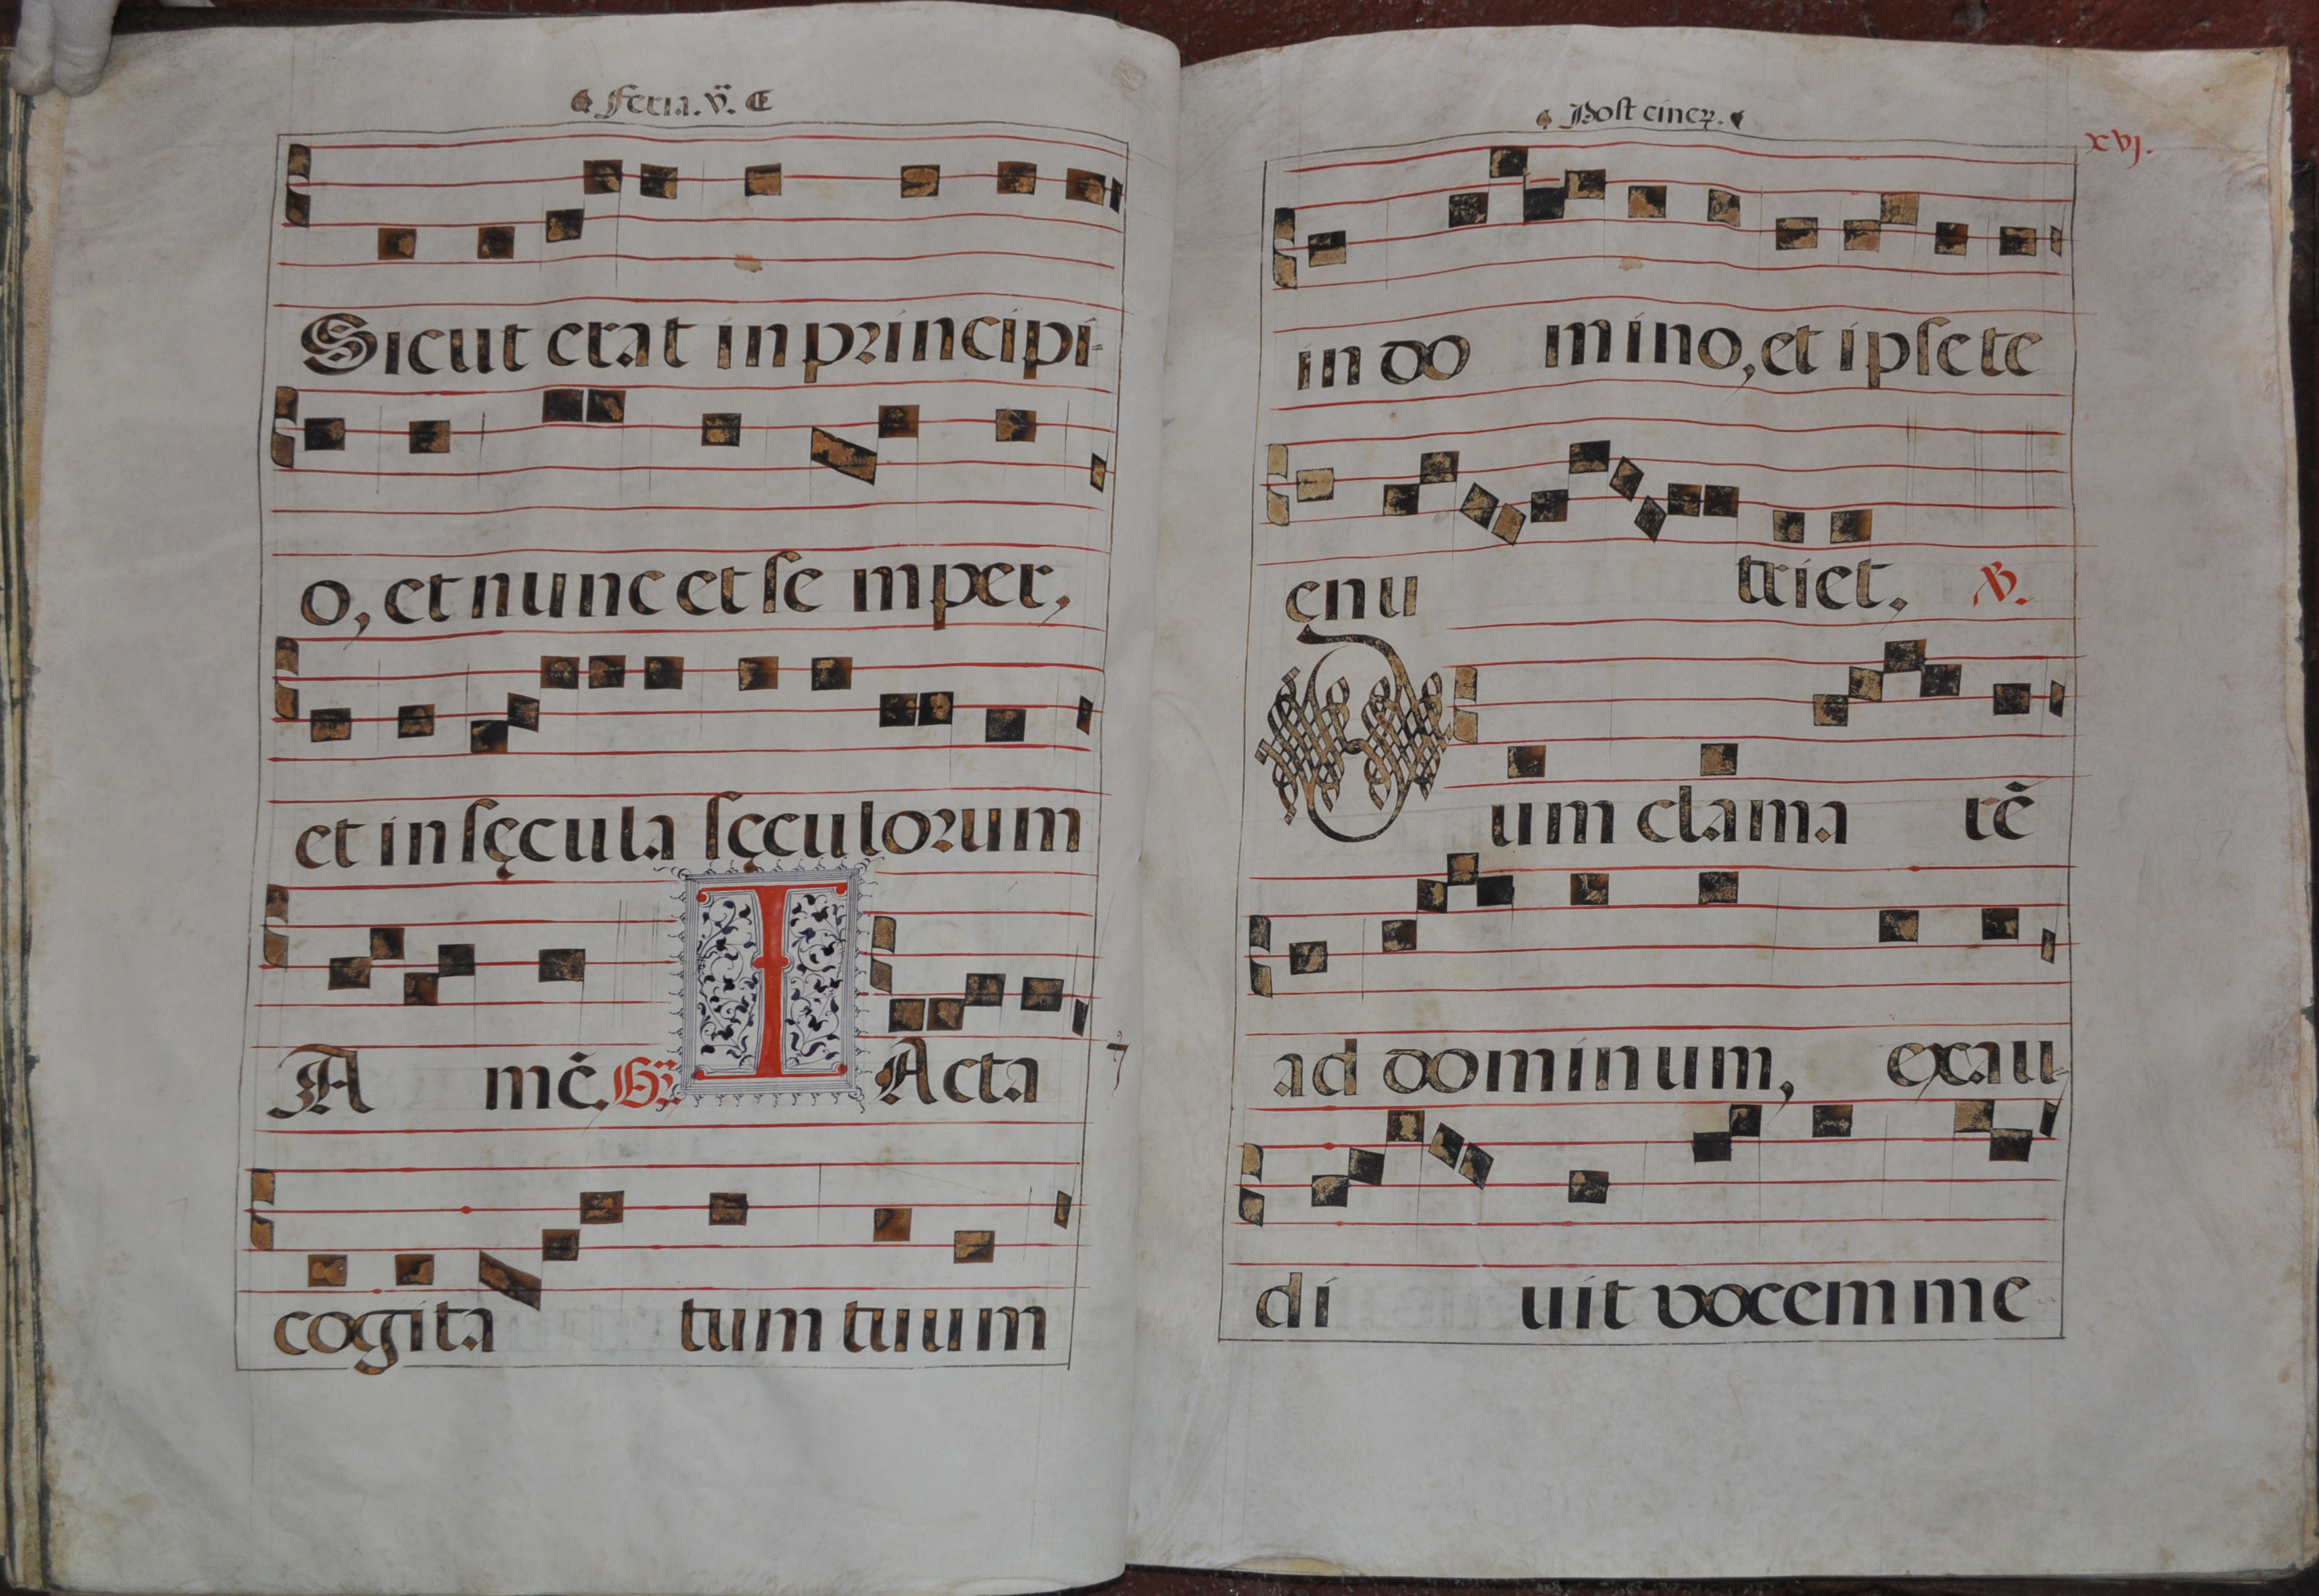 Feria. v.
Sicut erat in principi-
o, et nunc et se mper,
et in sęcula sęculorum
A mē. Gr. I Acta
cogita tum tuum
Post cineꝝ.
xvj.
in do mino, et ipse te
enu triet. V.
D um clama rē
ad dominum, exau-
di uit vocem me